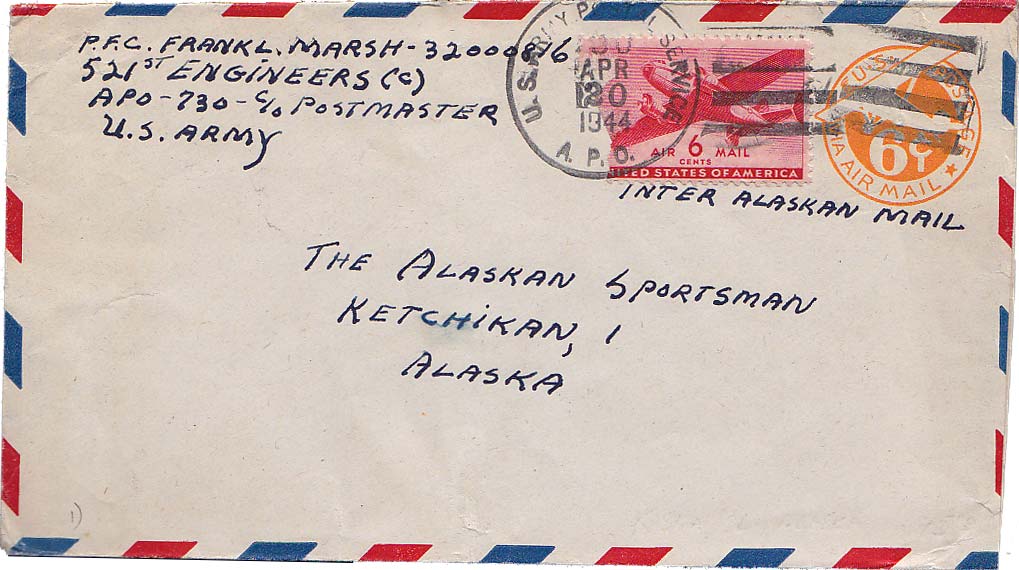 P.F.C. FRANK L. MARSH - 32000896
521ST ENGINEERS (C)
APO-730-C/O POSTMASTER
U.S. ARMY
U.S. ARMY POSTAL SERVICE
APR
20
1944
A. P. O.
AIR 6 MAIL
CENTS
UNITED STATES OF AMERICA
U.S. POSTAGE
6¢
VIA AIR MAIL
INTER ALASKAN MAIL
THE ALASKAN SPORTSMAN
KETCHIKAN, 1
ALASKA
1)